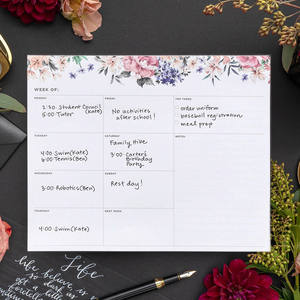 WEEK OF:
MONDAY
1:30 Student Council (Kate)
5:00 Tutor
TUESDAY
4:00 Swim (Kate)
6:00 Tennis (Ben)
WEDNESDAY
3:00 Robotics (Ben)
THURSDAY
4:00 Swim (Kate)
FRIDAY
No activities
after school!
SATURDAY
Family Hike
3:00 Carter's
Birthday
Party
SUNDAY
Rest day!
NEXT WEEK
TOP THREE
order uniform
baseball registration
meal prep
NOTES
Life
life believe is
so dark as